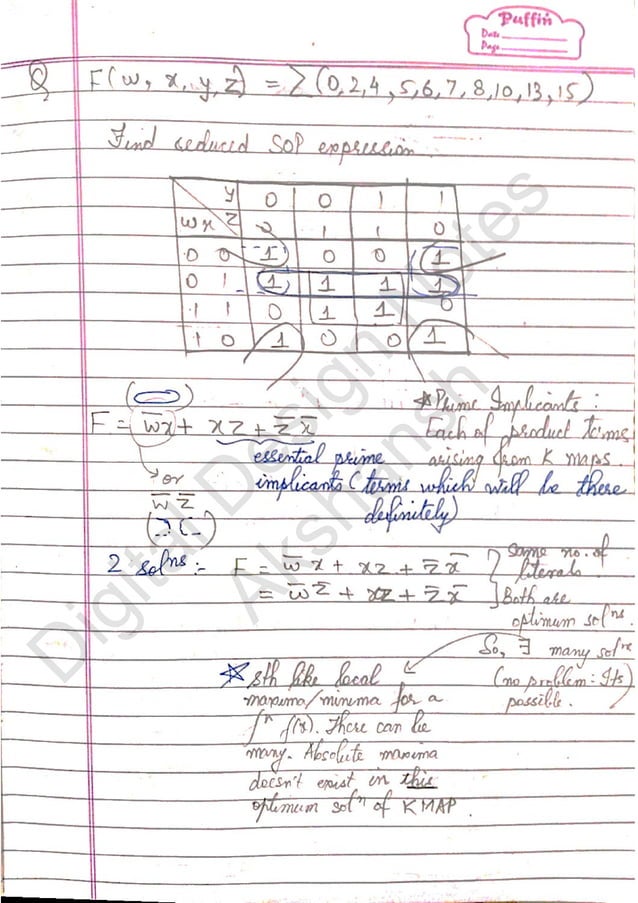 Puffin
Date
Page
Q F(w, x, y, z) = Σ(0,2,4,5,6,7,8,10,13,15)
Find reduced SOP expression.
y 0 0 1 1
wx z 0 1 1 0
0 0 1 0 0 1
0 1 1 1 1 1
1 1 0 1 1 0
1 0 1 0 0 1
F = w̅x + xz + z̅ x̅
essential prime
implicants (terms which will be there
definitely)
or
w̅ z̅
* Prime Implicants :
Each of product terms
arising from K maps.
2 solⁿˢ :- F = w̅ x + xz + z̅ x̅
= w̅ z̅ + xz + z̅ x̅
Same no. of
literals
Both are
optimum solⁿˢ.
So, ∃ many solⁿˢ
(no problem : Its)
possible.
* sth like local
maxima/minima for a
fⁿ f(x). There can be
many. Absolute maxima
doesn't exist in this
optimum solⁿ of KMAP.
Digital Design Notes
Akshansh